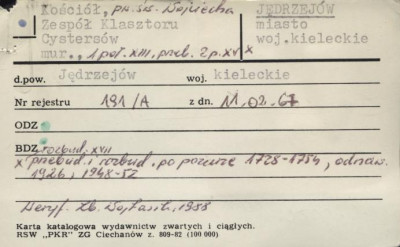 Kościół, p.w. św. Wojciecha JĘDRZEJÓW
Zespół Klasztoru miasto
Cystersów woj.kieleckie
mur., 1 poł. XIII, przeb. 2 p. XV x
d.pow. Jędrzejów woj. kieleckie
Nr rejestru 191/A z dn. 11.02.67
ODZ
BDZ rozbud. XVII
x przebud. i rozbud. po pożarze 1728-1754, odnaw.
1926, 1948-52
Karta katalogowa wydawnictw zwartych i ciągłych.
RSW „PKR" ZG Ciechanów z. 809-82 (100 000)